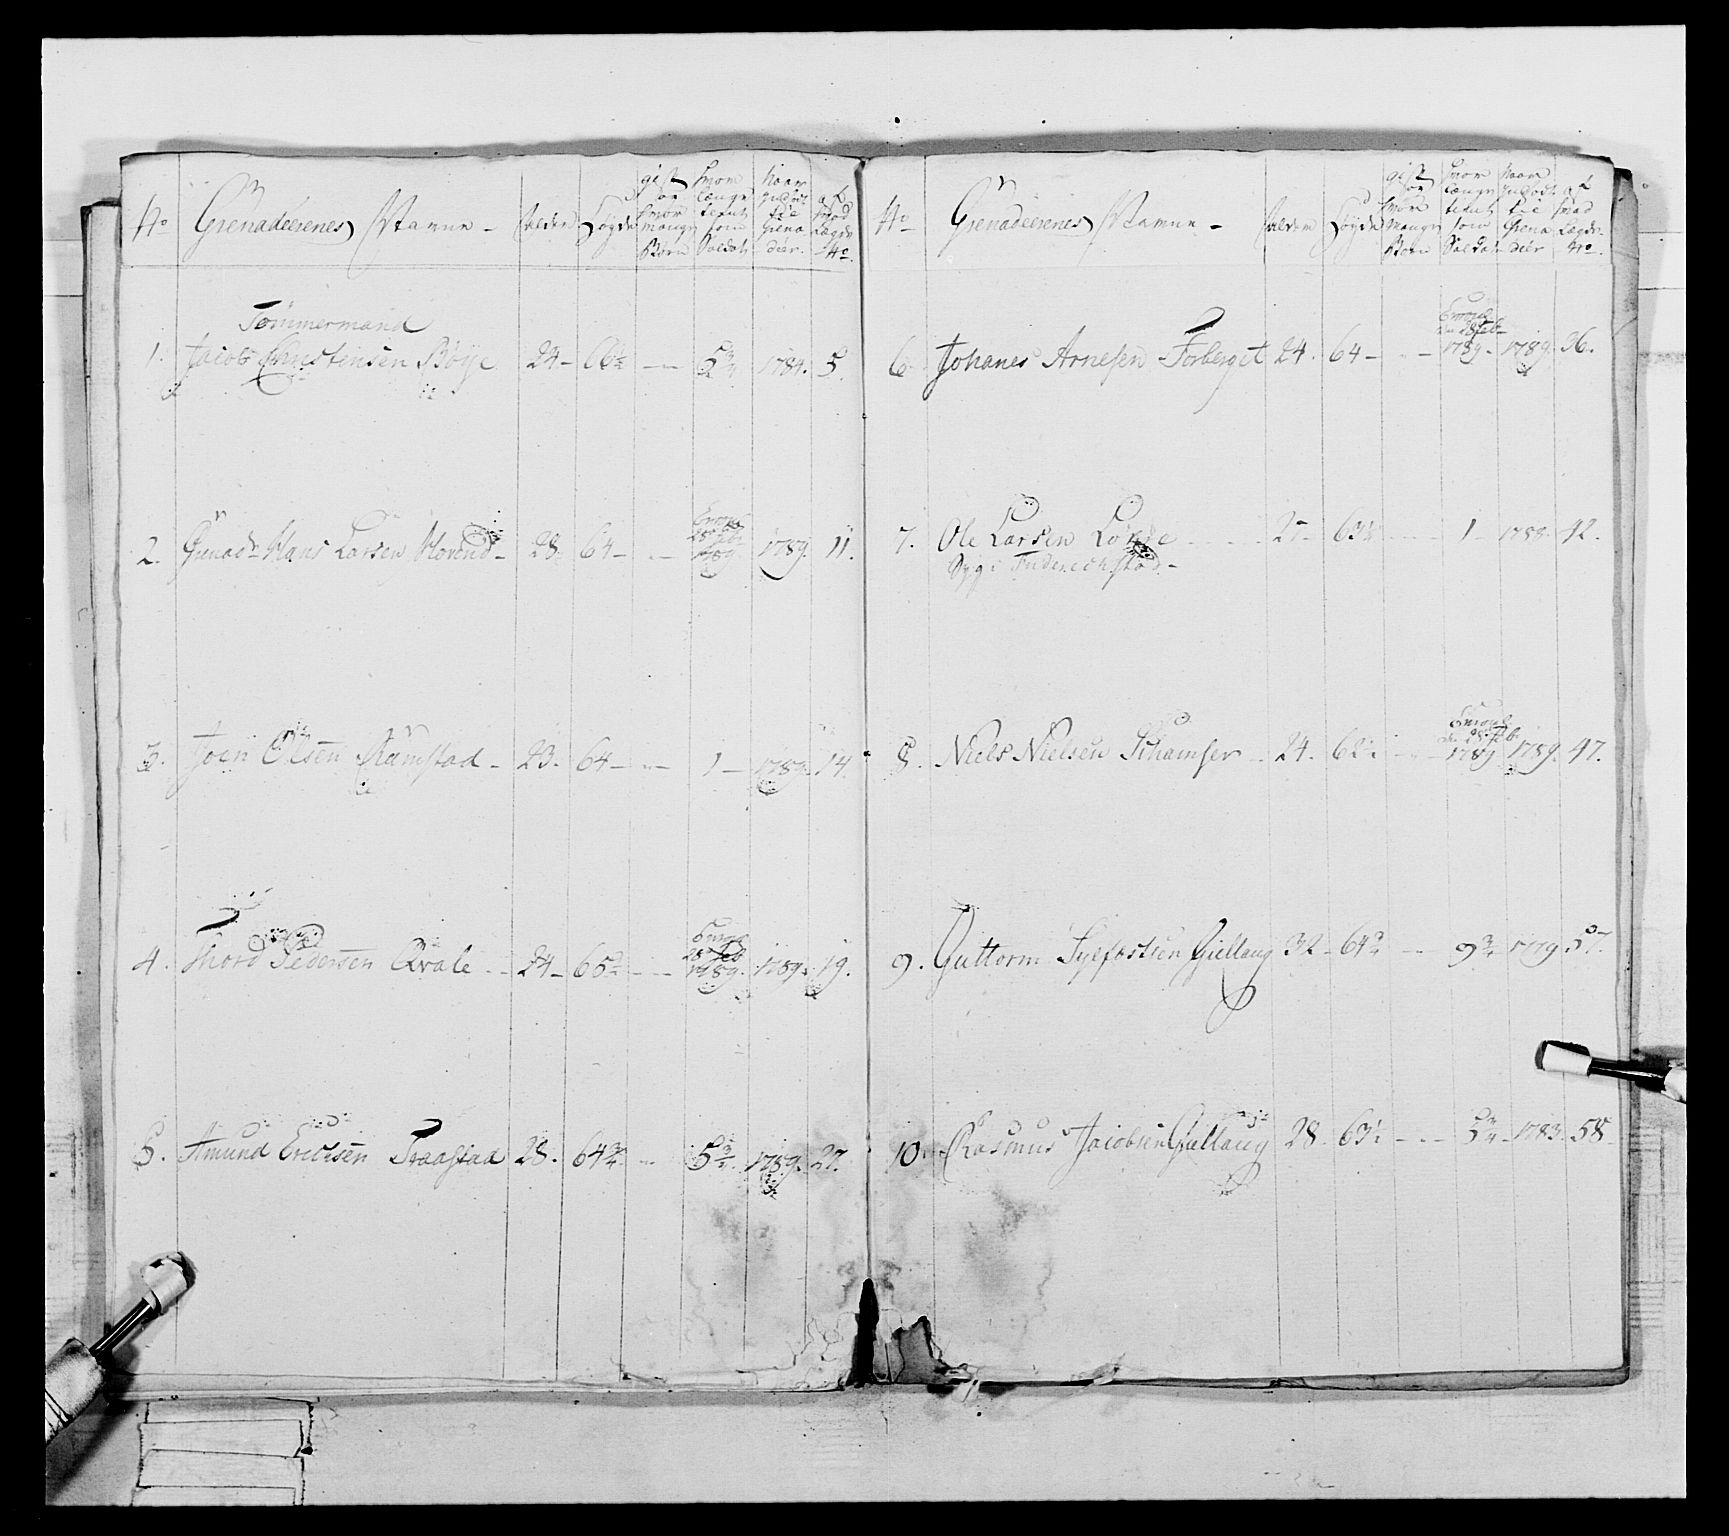 No Grenadeerenes Navne - Alder Høyde gift og hvor mange Børn hvor længe tient som Soldat Naar giedst til Grena dier af hvad Lægds No
Tømmermand
1. Jacob Christensen Böÿe 24 - 5 3/4 1784. 5.
2. Grenadr Hans Larsen Horend - 28 - 64 - 28 Feb 1789. 1789. 11.
3. Joen Olsen Ramstad - 23. 64 - 1 - 1789. 14.
4. Thord Pedersen Qvale - 24 - 65 28 Feb 1789. 1789. 19.
5. Amund Ericksen Traastad 28. 64 3/4 5 3/4 1789. 27.
No Grenadeerenes Navne - Alder Høyde gift og hvor Mange Børn hvor længe tient som Soldat Naar giedst til Grena dier af hvad Lægds No
6 Johanes Arnesen Forberget 24. 64 - 28 Feb 1789 - 1789. 36.
7. Ole Larsen 27 - 63 1/2 1 - 1788. 42.
Syg i Friderichstad -
8. Niels Nielsen 24. 62 1/2 den 28 Feb. 1789 1789. 47.
9. Guttorm Sylfestsen Giellaug 32 - 64 9 3/4 - 1779 57.
10. Rasmus Jacobsen Giellaug 28. 63 1/2 5 3/4 - 1783. 58